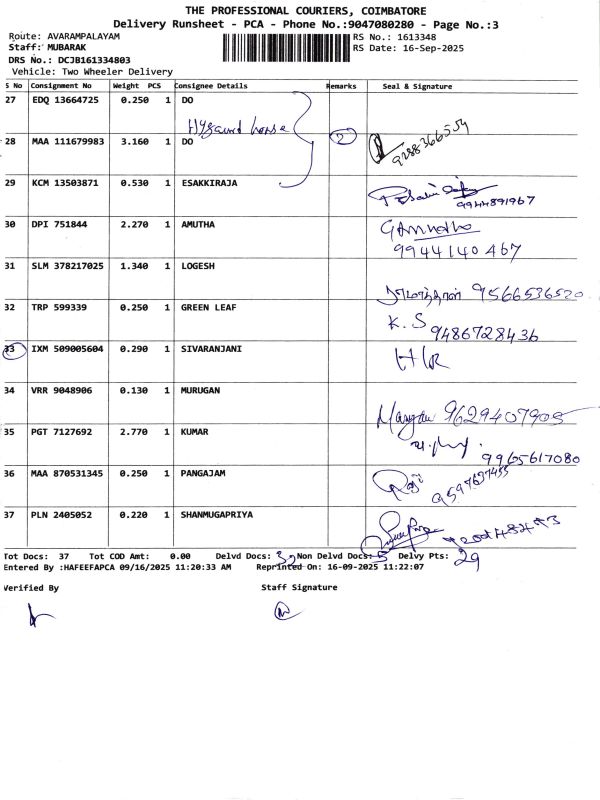 THE PROFESSIONAL COURIERS, COIMBATORE
Delivery Runsheet - PCA - Phone No.:9047080280 - Page No.:3
Route: AVARAMPALAYAM
RS No.: 1613348
Staff: MUBARAK
RS Date: 16-Sep-2025
DRS No.: DCJB161334803
Vehicle: Two Wheeler Delivery
S No Consignment No Weight PCS Consignee Details Remarks Seal & Signature
27 EDQ 13664725 0.250 1 DO
house
28 MAA 111679983 3.160 1 DO 2 9288366554
29 KCM 13503871 0.530 1 ESAKKIRAJA
9944891967
30 DPI 751844 2.270 1 AMUTHA
9944140467
31 SLM 378217025 1.340 1 LOGESH
9566536520
32 TRP 599339 0.250 1 GREEN LEAF K.S
9486728436
33 IXM 509005604 0.290 1 SIVARANJANI
34 VRR 9048906 0.130 1 MURUGAN
9629407905
35 PGT 7127692 2.770 1 KUMAR
9965617080
36 MAA 870531345 0.250 1 PANGAJAM
37 PLN 2405052 0.220 1 SHANMUGAPRIYA
Tot Docs: 37 Tot COD Amt: 0.00 Delvd Docs: 32 Non Delvd Docs: 5 Delvy Pts: 29
Entered By :HAFEEFAPCA 09/16/2025 11:20:33 AM Reprinted On: 16-09-2025 11:22:07
Verified By Staff Signature